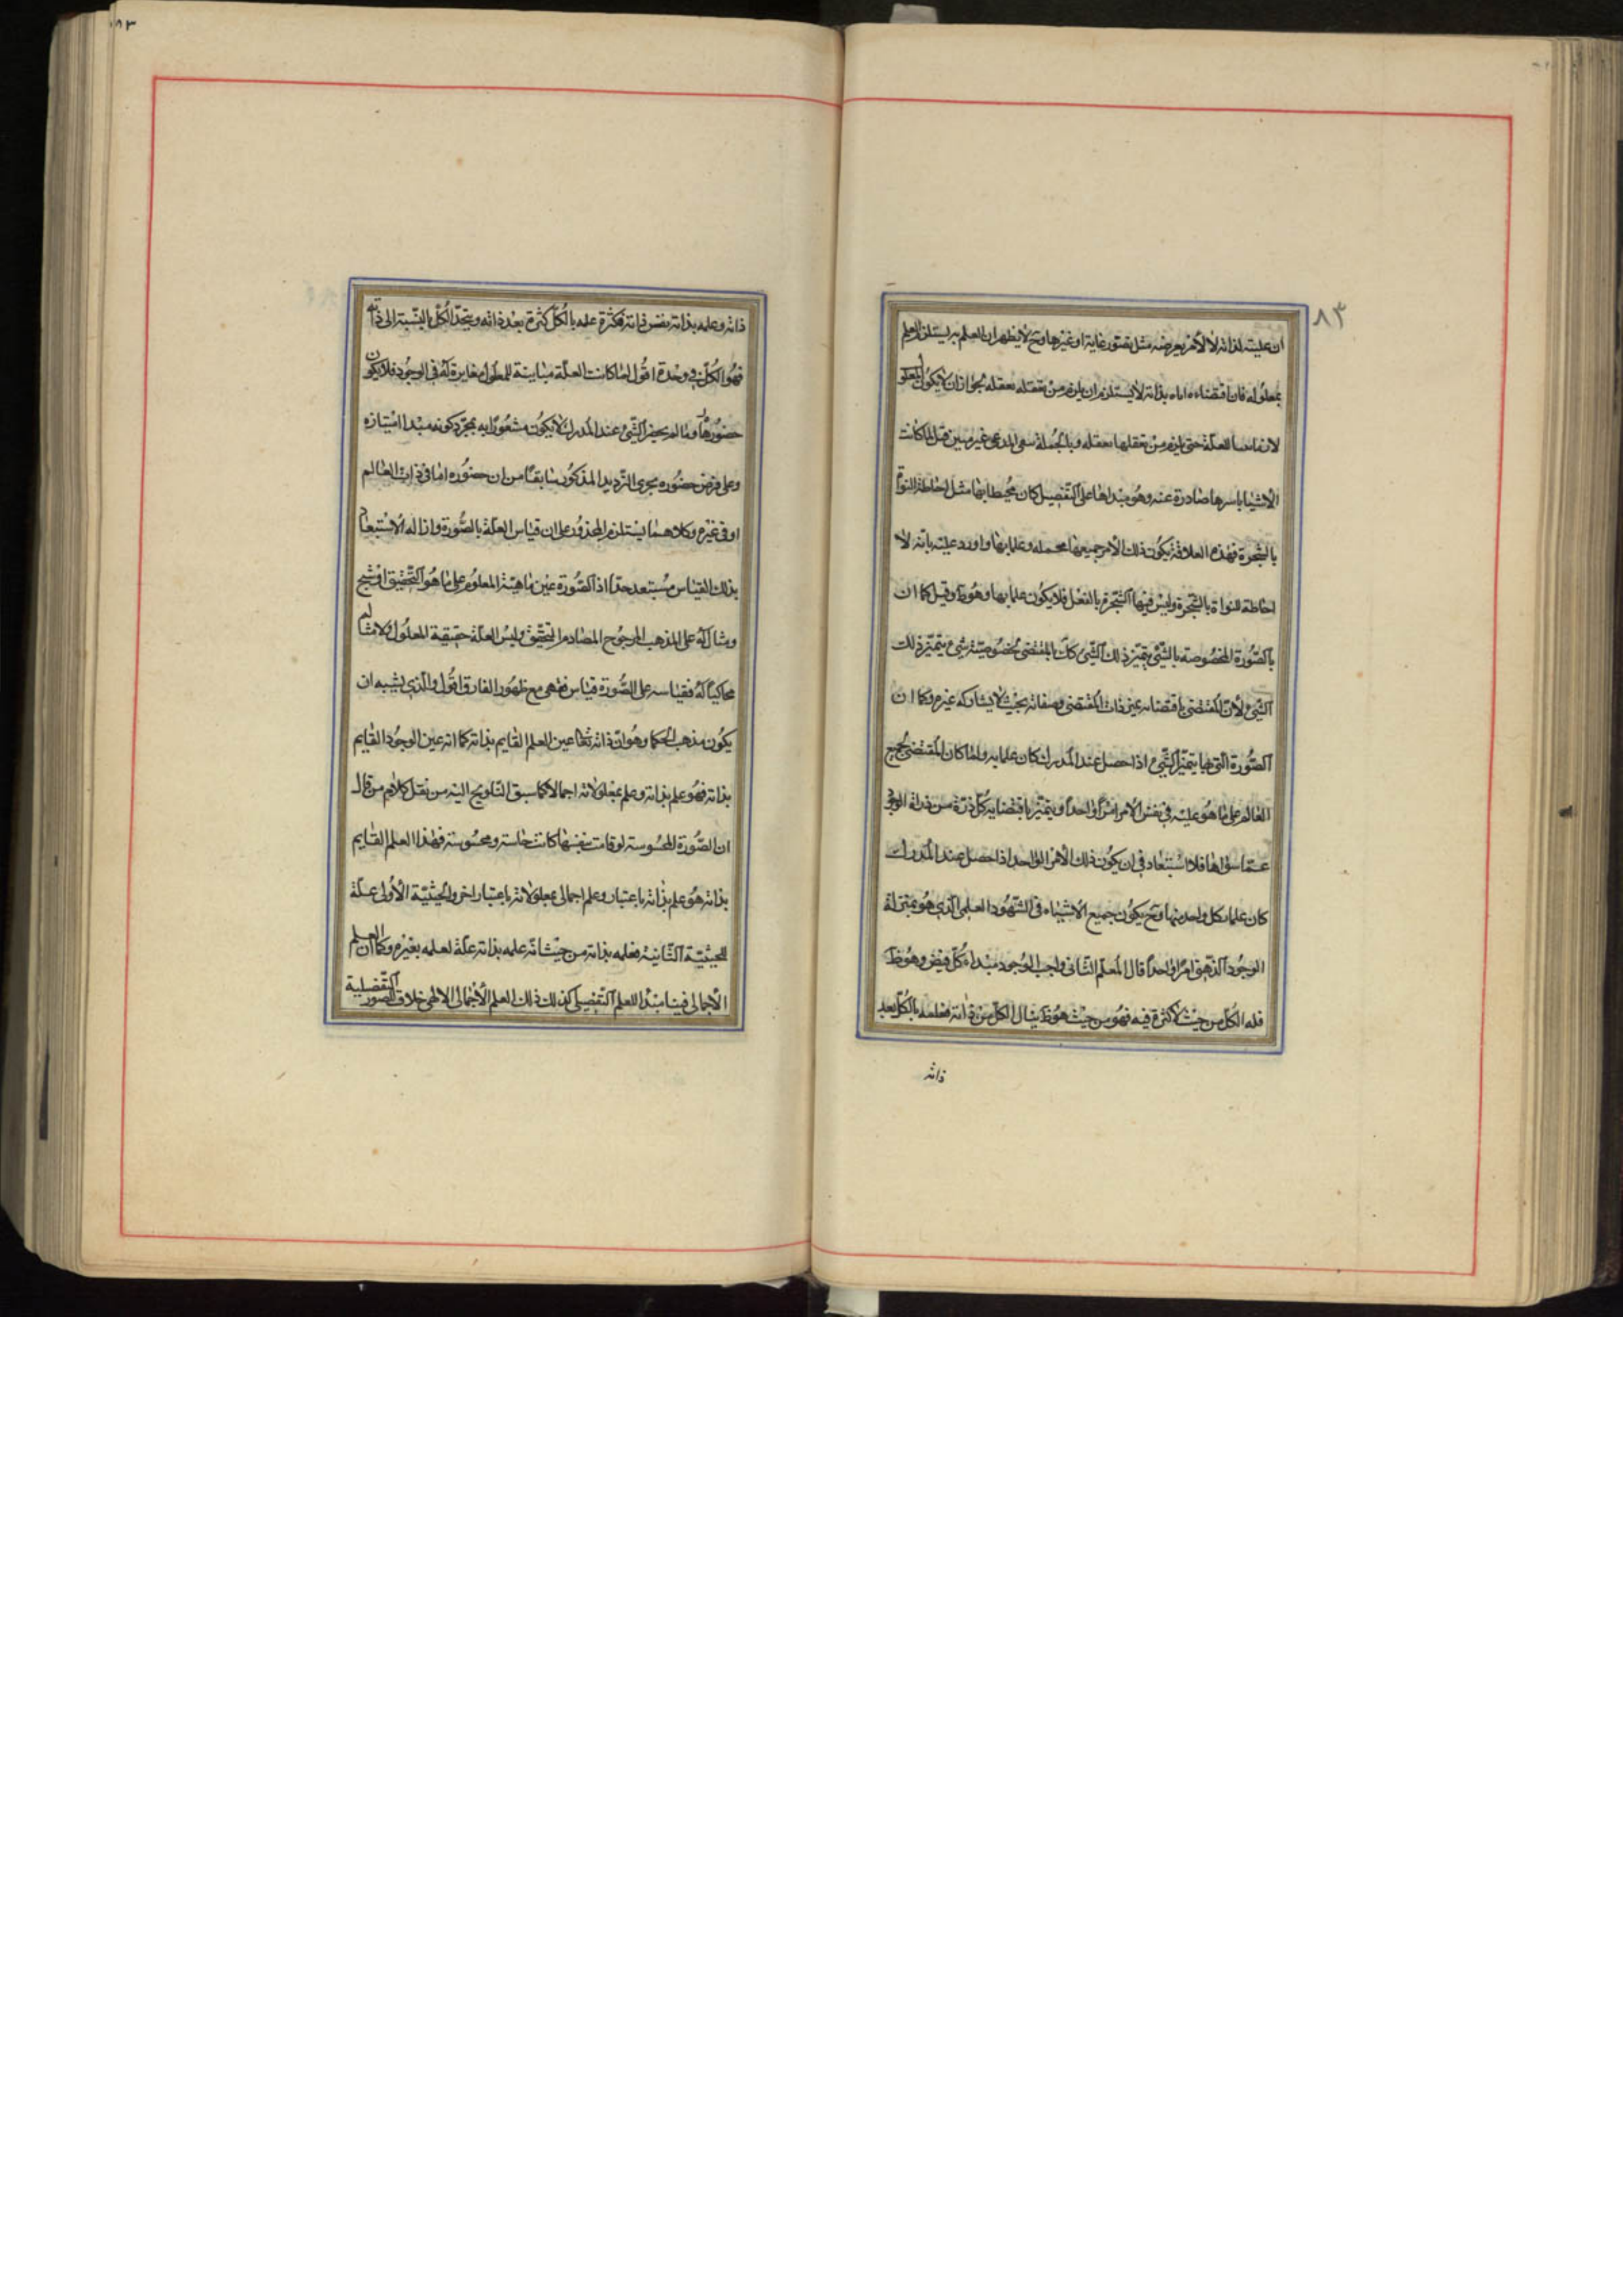 ٨٣
ان عليته لذاته لا لأمر يعرضه مثل تصور غاية او غيرها وح لا يظهر ان العلم به يستلزم العلم
بمعلوله فان اقتضاءه اياه بذاته لا يستلزم ان يلزم من تعقله تعقله لجواز ان لا يكون المعلول
لازما بينا للعلة حتى يلزم من تعقلها تعقله وبالجملة المدعى غير مبين قيل لما كانت
الاشياء باسرها صادرة عنه وهو مبداها على التفصيل كان محيطا بها مثل احاطة النواة
بالشجرة فهذه العلاقة يكون ذلك الامر جميعها مجمله وعلما بها واورد عليه بانه لا
احاطة للنواة بالشجرة وليس فيها الشجرة بالفعل فلا يكون علما بها وهو ظ وقيل كما ان
بالصورة المخصوصه بالشئ يتميز ذلك الشئ كك بالمقتضى لخصوصية شئ يتميز ذلك
الشئ لأن المقتضى باقتضائه يميز ذات المقتضى وصفاته بحيث لا يشاركه غيره وكما ان
الصورة التي بها يتميز الشئ اذا حصل عند المدرك كان علما به ولما كان المقتضى لجميع
العالم على ما هو عليه في نفس الامر امرا واحدا ويتميز باقتضايه كل ذرة من ذرات الوجود
عما سواها فلا استبعاد في ان يكون ذلك الأمر الواحد اذا حصل عند المدرك
كان علما بكل واحد منها وح يكون جميع الاشياء في الشهود العلمي الذي هو بمنزلة
الوجود الذهني امرا واحدا قال المعلم الثاني واجب الوجود مبداء كل فيض وهو ظ
فله الكل من حيث لا كثرة فيه فهو من حيث هو ظ ينال الكل من ذاته فعلمه بالكل بعد
ذاته
ذاته وعلمه بذاته نفس ذاته فكثرة علمه بالكل كثرة بعد ذاته ويتحد الكل بالنسبة الى ذاته
فهو الكل في وحدة اقول لما كانت العلة مباينة للمعلول مغايرة له في الوجود فلا يكون
حضورها حضوره وما لم يحضر الشئ عند المدرك لا يكون مشعورا به بمجرد كونه مبدا امتيازه
وعلى فرض حضوره يجرى الترديد المذكور سابقا من ان حضوره اما في ذات العالم
او في غيره وكلاهما يستلزم المحذور على ان قياس العلة بالصورة وازاله الاستبعاد
بذلك القياس مستبعد جدا اذ الصورة عين ماهية المعلوم على ما هو التحقيق او شبح
ومثال له على المذهب المرجوح المصادم للتحقيق وليس العلة حقيقية المعلول ولا مثالا
محاكيا له فقياسه على الصورة قياس فقهى مع ظهور الفارق اقول والذي يشبه ان
يكون مذهب الحكما وهو ان ذاته تعالى عين العلم القايم بذاته كما انه عين الوجود القايم
بذاته فهو علم بذاته وعلم بمعلولاته اجمالا كما سبق التلويح اليه من نقل كلام من قال
ان الصورة المحسوسة لو قامت بنفسها كانت حاسة ومحسوسة فهذا العلم القايم
بذاته هو علم بذاته باعتبار وعلم اجمالى بمعلولاته باعتبار اخر والحيثية الأولى علة
للحيثية الثانية فعلمه بذاته من حيث انه علمه بذاته علة لعلمه بغيره وكما ان العلم
الأجمالى فينا مبدأ للعلم التفصيلى كذلك ذلك العلم الأجمالى الالهى خلاق الصور التفصيلية